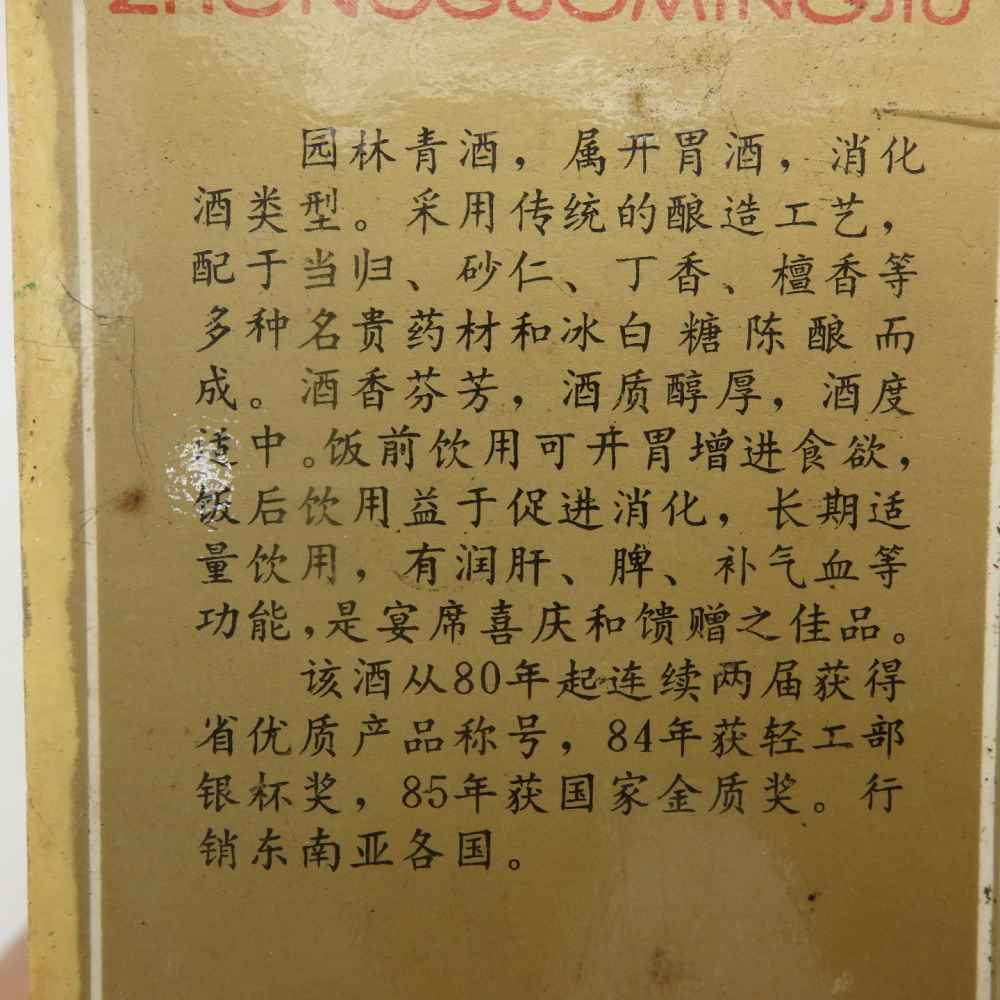 ZHONGGUOMINGJIU
园林青酒，属开胃酒，消化
酒类型。采用传统的酿造工艺，
配于当归、砂仁、丁香、檀香等
多种名贵药材和冰白糖陈酿而
成。酒香芬芳，酒质醇厚，酒度
适中。饭前饮用可开胃增进食欲，
饭后饮用益于促进消化，长期适
量饮用，有润肝、脾、补气血等
功能，是宴席喜庆和馈赠之佳品。
该酒从80年起连续两届获得
省优质产品称号，84年获轻工部
银杯奖，85年获国家金质奖。行
销东南亚各国。